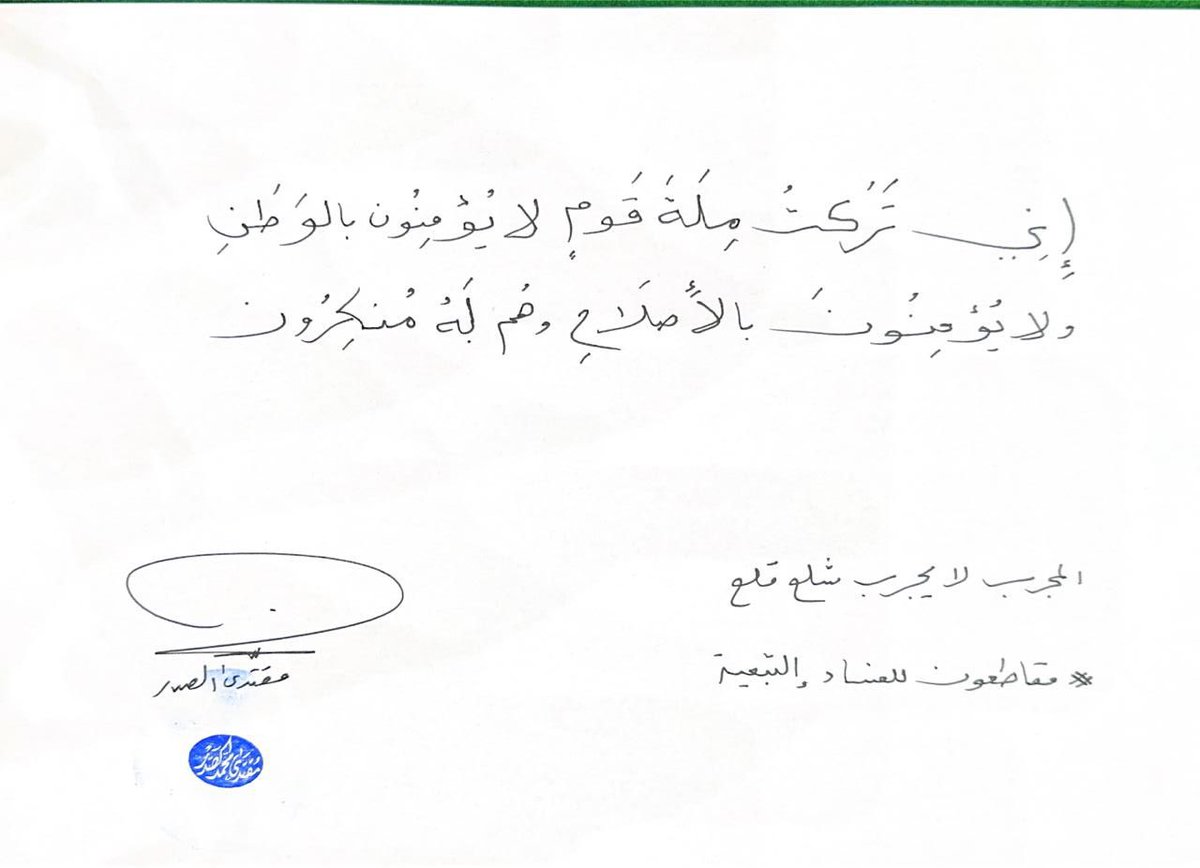 إِنِي تَرَكتُ مِلَةَ قَومٍ لا يُؤمِنُون بالوَطَنِ
ولا يُؤمِنُونَ بالأِصلَاحِ وهُم لَهُ مُنكِرُون
المجرب لا يجرب شلع قلع
* مقاطعون للفساد والتبعية
مقتدى الصدر
مقتدى محمد الصدر